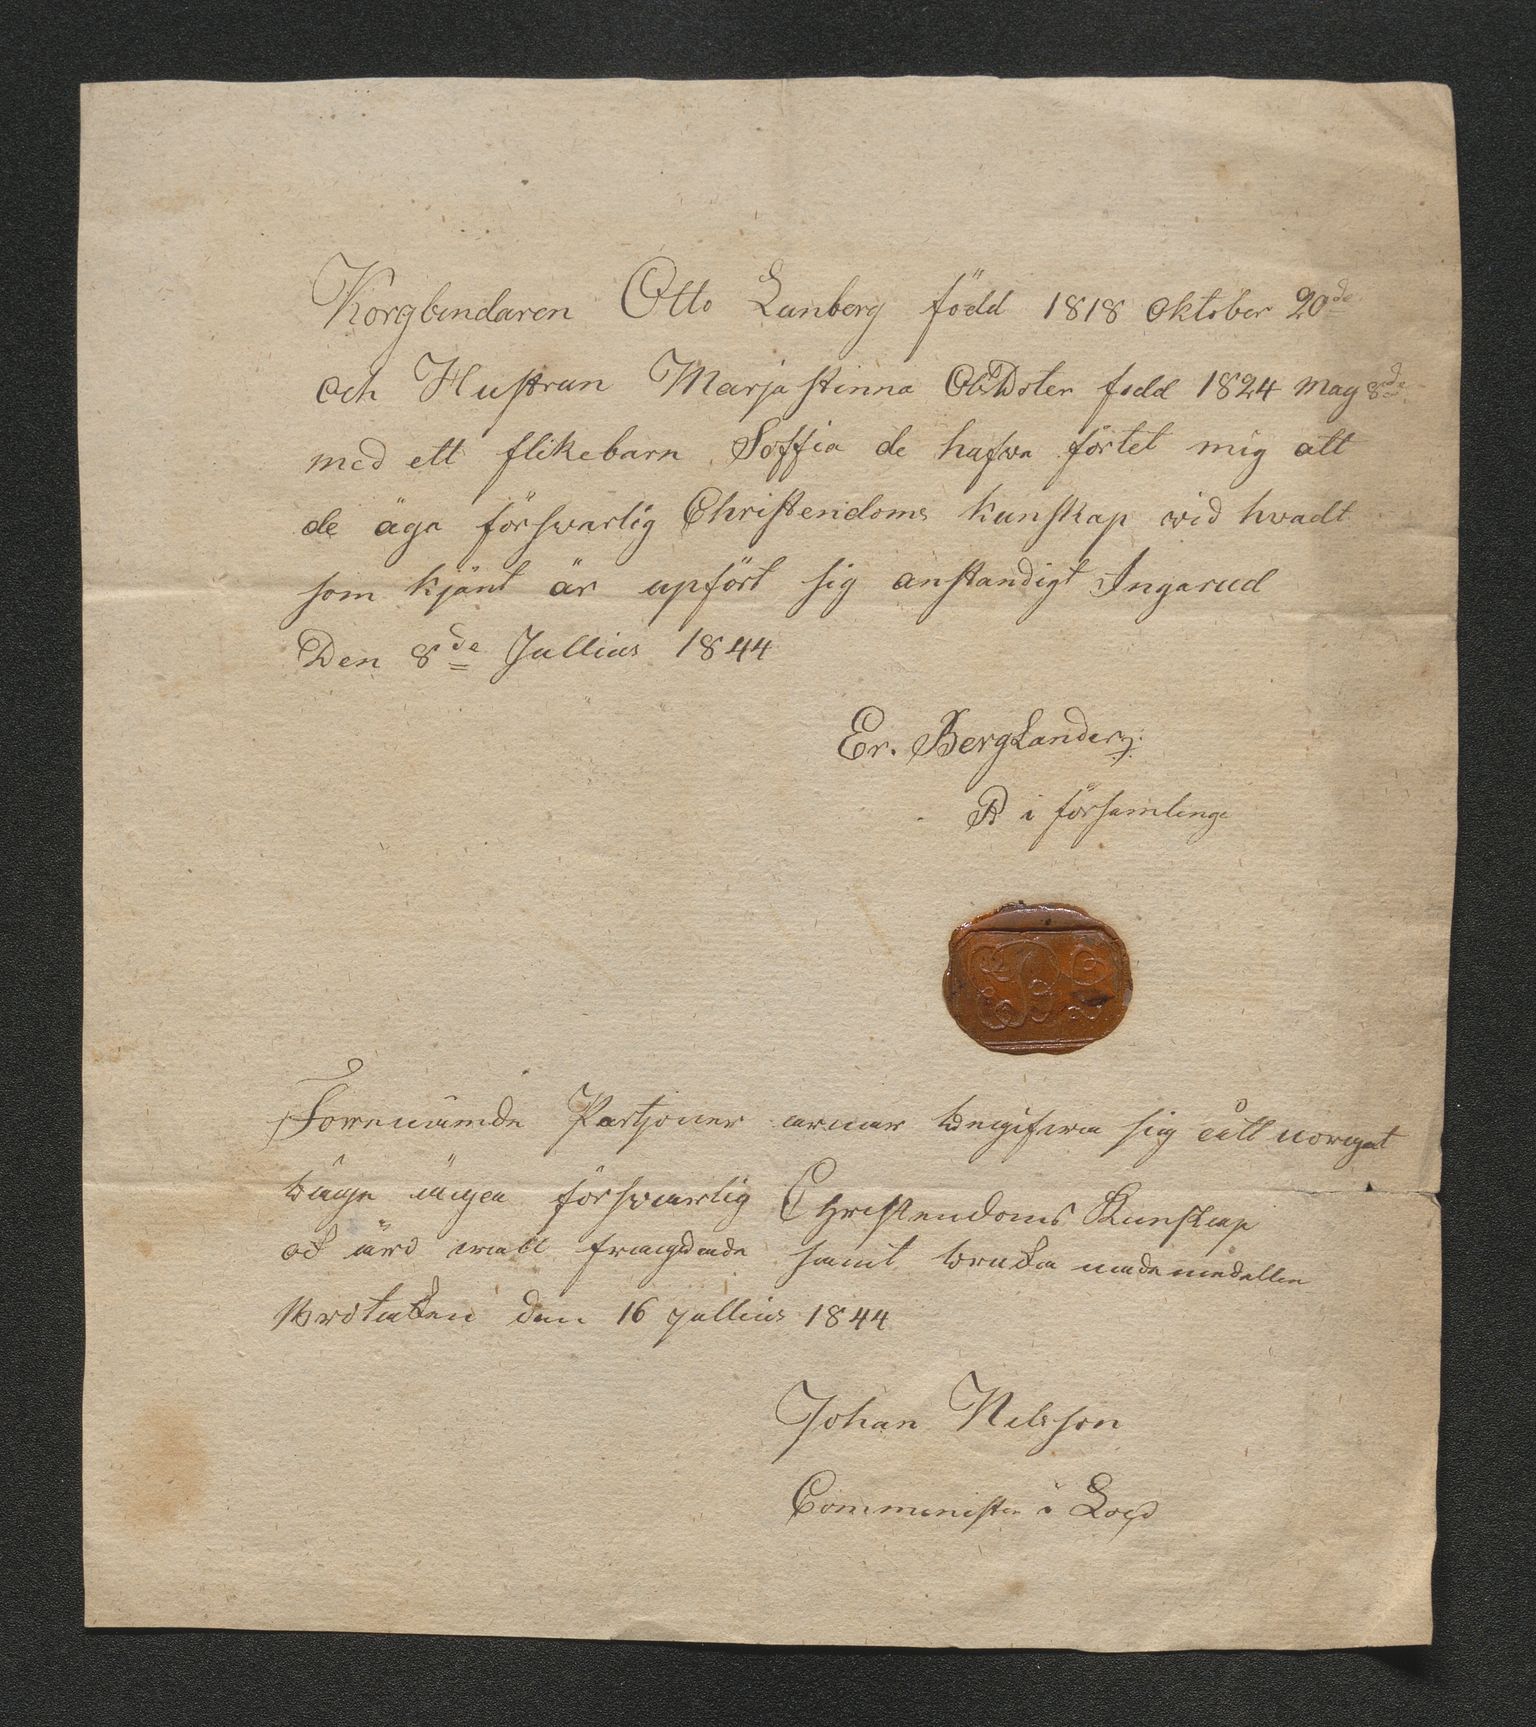 Korgbindaren Otto Lanberg född 1818 Oktober 20de
Och Hustrun Marja Stinna Ols Doter född 1824 May 8de
med ett flikebarn Soffia de hafva förtet mig att
de äga försvarlig Christendoms kunskap wid hvadt
som kjänt är upfört sig anstandigt Ingarud
Den 8de Jullius 1844
Er. BergLander
P i församlings
Forenämde Partjoner arnar begifwa sig till norget
bäge ägen försvarlig Christendoms Kunskap
samt bruka nademedellen
den 16 jullius 1844
Johan Nilsson
Comminister i